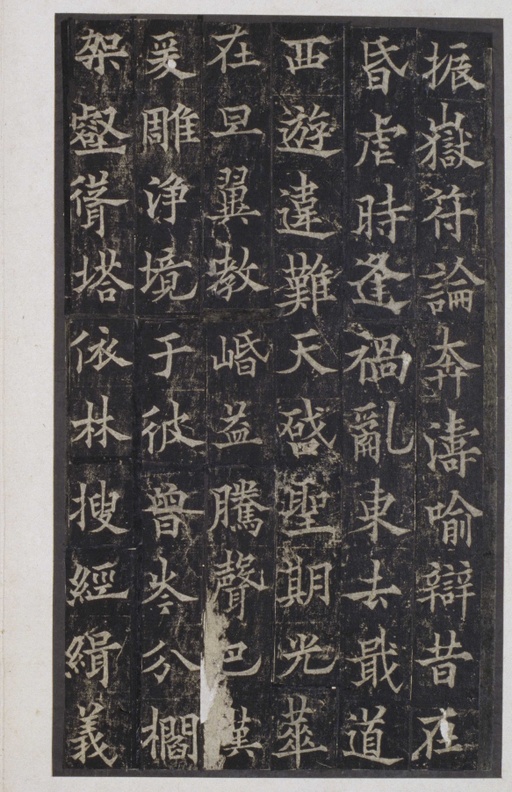 振嶽符論奔濤喻辯昔在
昏虐時逢禍亂東去戢道
西遊違難天啓聖期光華
在旦翼教崏益騰聲巴漢
爰雕淨境于彼曾岑分櫩
架壑聳塔依林搜經緝義